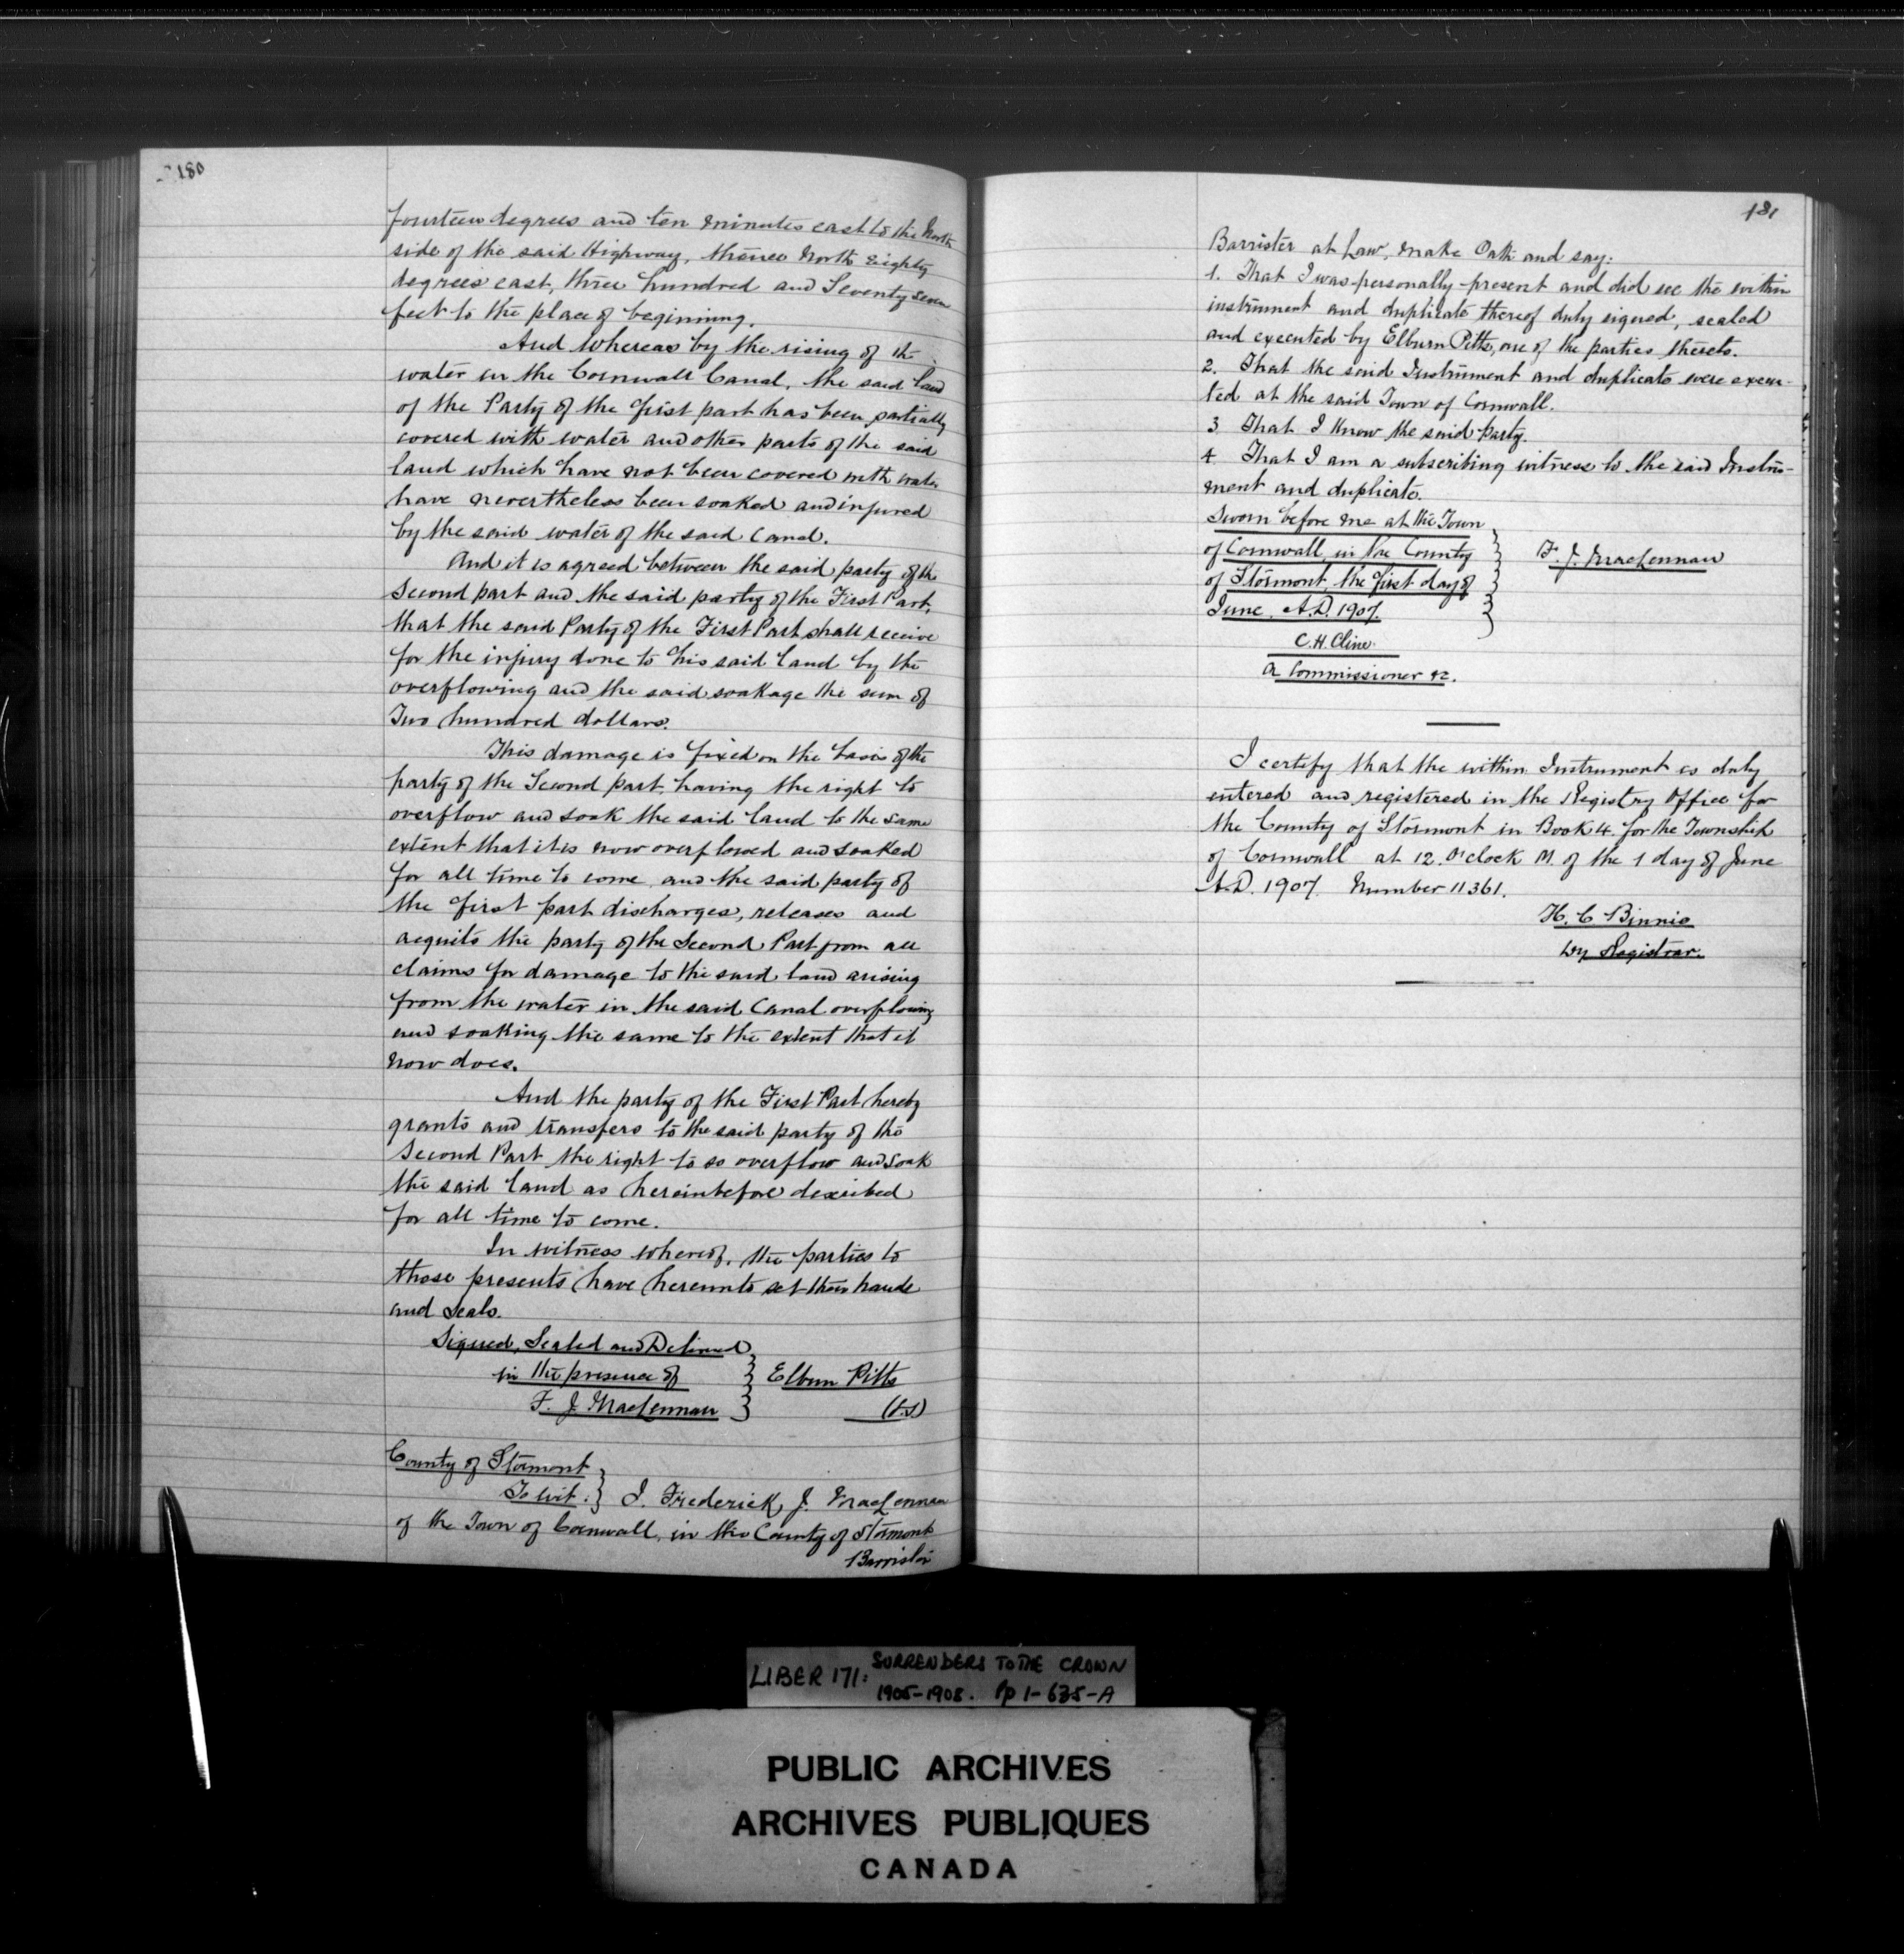 180
fourteen degrees and ten minutes east to the North
side of the said Highway, thence North Eighty
degrees east, three hundred and Seventy seven
feet to the place of beginning.
And Whereas by the rising of the
water in the Cornwall Canal, the said land
of the Party of the first part has been partially
covered with water and other parts of the said
land which have not been covered with water
have nevertheless been soaked and injured
by the said water of the said Canal.
And it is agreed between the said party of the
Second part and the said party of the First Part,
that the said Party of the First Part shall receive
for the injury done to his said land by the
overflowing and the said soakage the sum of
Two hundred dollars.
This damage is fixed on the basis of the
party of the Second part having the right to
overflow and soak the said land to the same
extent that it is now overflowed and soaked
for all time to come and the said party of
the first part discharges, releases and
acquits the party of the Second Part from all
claims for damage to the said land arising
from the water in the said Canal overflowing
and soaking the same to the extent that it
now does.
And the party of the First Part hereby
grants and transfers to the said party of the
Second Part the right to so overflow and soak
the said land as hereinbefore described
for all time to come.
In witness whereof, the parties to
these presents have hereunto set their hands
and seals.
Signed, Sealed and Delivered
in the presence of } Elburn Pitts
F. J. MacLennan } (L.S)
County of Stormont
To wit. } I, Frederick J. MacLennan
of the Town of Cornwall, in the County of Stormont
Barrister
181
Barrister at Law, make Oath and say:
1. That I was personally present and did see the within
instrument and duplicate thereof duly signed, sealed
and executed by Elburn Pitts, one of the parties thereto.
2. That the said Instrument and duplicate were execu-
ted at the said Town of Cornwall.
3 That I know the said Party.
4 That I am a subscribing witness to the said Instru-
ment and duplicate.
Sworn before me at the Town
of Cornwall in the County } F. J. MacLennan
of Stormont, the first day of
June, A.D. 1907.
C. H. Cline
A Commissioner &c.
I certify that the within Instrument is duly
entered and registered in the Registry Office for
the County of Stormont in Book 4. for the Township
of Cornwall at 12. O'clock M. of the 1 day of June
A.D. 1907 Number 11361.
H. C Binnie
Dy Registrar.
LIBER 171: SURRENDERS TO THE CROWN
1905-1908. Pp 1-635-A
PUBLIC ARCHIVES
ARCHIVES PUBLIQUES
CANADA